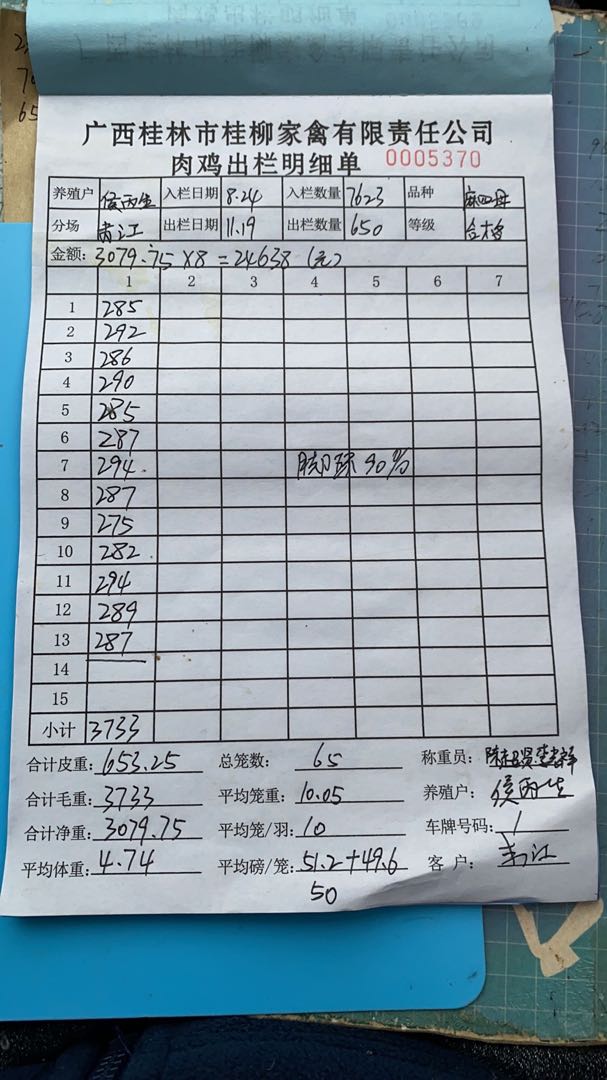 广西桂林市桂柳家禽有限责任公司
肉鸡出栏明细单 0005370
养殖户 侯丙生 入栏日期 8.24 入栏数量 7623 品种
分场 青江 出栏日期 11.19 出栏数量 650 等级 合格
金额: 3079.75 X8 =24638 (元)
1 2 3 4 5 6 7
1 285
2 292
3 286
4 290
5 285
6 287
7 294 90%
8 287
9 275
10 282
11 294
12 289
13 287
14
15
小计 3733
合计皮重: 653.25 总笼数: 65 称重员:
合计毛重: 3733 平均笼重: 10.05 养殖户: 侯丙生
合计净重: 3079.75 平均笼/羽: 10 车牌号码: 1
平均体重: 4.74 平均磅/笼: 51.2+49.6 客户:
50